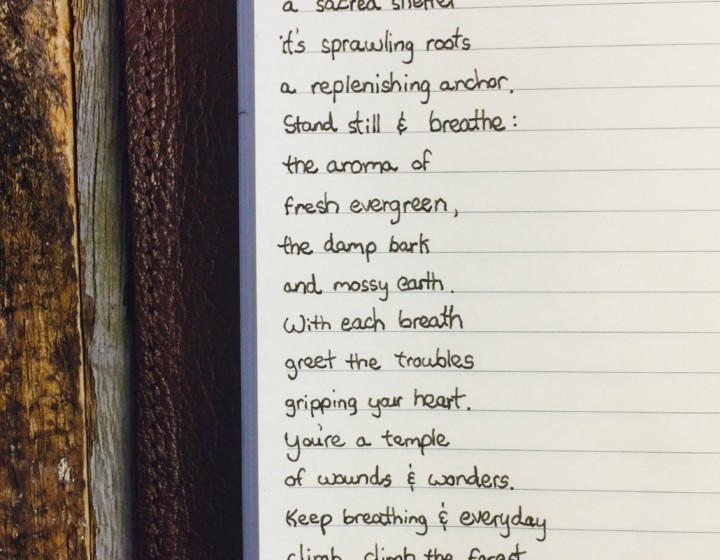 a sacred shelter
it's sprawling roots
a replenishing anchor.
Stand still & breathe:
the aroma of
fresh evergreen,
the damp bark
and mossy earth.
With each breath
greet the troubles
gripping your heart.
You're a temple
of wounds & wonders.
Keep breathing & everyday
climb, climb the forest